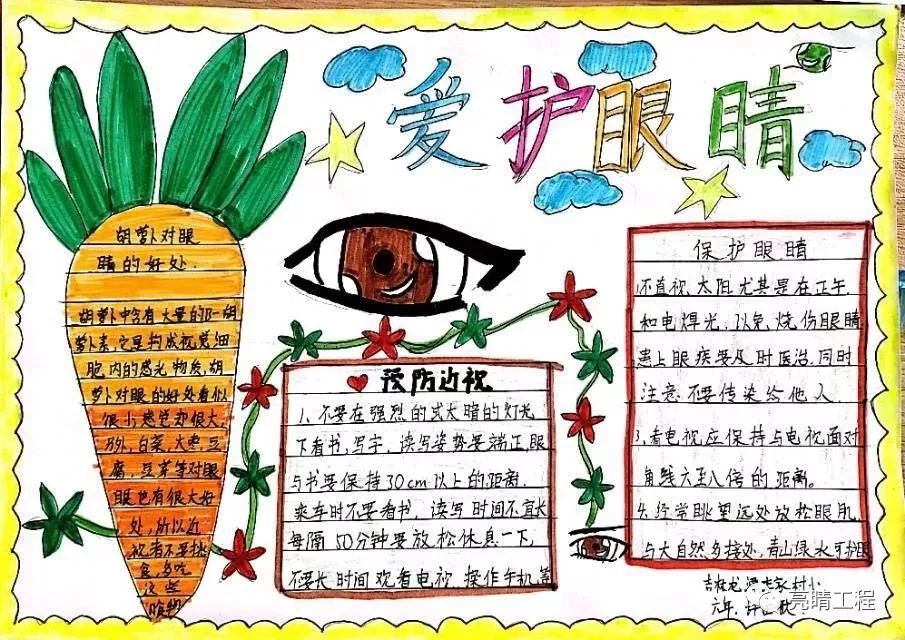 爱护眼睛
胡萝卜对眼
睛的好处.
胡萝卜中含有大量的B-胡
萝卜素,它是构成视觉细
胞内的感光物质,胡
萝卜对眼的好处看似
很小感觉却很大
另外,白菜,大枣,豆
腐,豆芽等对眼
眼也有很大好
处,所以近
视者不要挑
食,多吃
这些
食物
预防近视
1、不要在强烈的或太暗的灯光
下看书,写字,读写姿势要端正,眼
与书要保持30cm以上的距离.
乘车时不要看书,读写时间不宜长
每隔50分钟要放松休息一下,
不要长时间观看电视 操作手机等
保护眼睛
不直视太阳尤其是在正午
和电焊光,以免烧伤眼睛
患上眼疾要及时医治,同时
注意不要传染给他人
3、看电视应保持与电视面对
角线六至八倍的距离。
4.经常眺望远处放松眼肌,
与大自然多接处,青山绿水可护眼
村小
六年.
亮睛工程